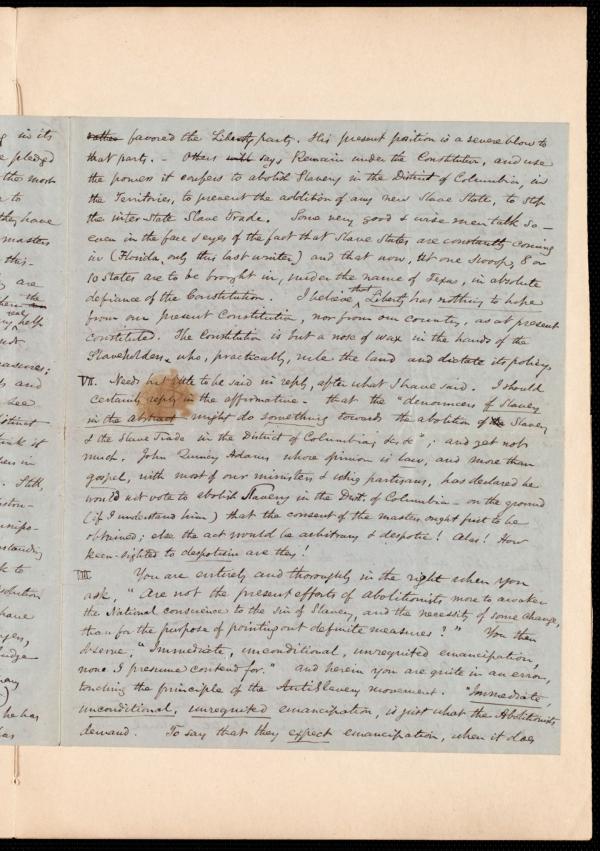 g in its
e pledged
the most
e to
they have
masters
this-
g are
the
real
help
not
easures;
s, and
see
distinct
think it
pers in
. Still,
nstanding
k to
solution
have
gers,
udge
many
)
he has
has
rather favored the Liberty party. His present position is a severe blow to
that party. – Others will say, Remain under the Constitution, and use
the powers it confers to abolish Slavery in the District of Columbia, in
the Territories, to prevent the addition of any new Slave State, to stop
the inter-State Slave Trade. Some very good & wise men talk so –
even in the face & eyes of the fact that Slave States are constantly coming
in (Florida only this last winter) and that now, at one swoop, 8 or
10 States are to be brought in, under the name of Texas, in absolute
defiance of the Constitution. I believe that Liberty has nothing to hope
from our present Constitution, nor from our country, as at present
constituted. The Constitution is but a nose of wax in the hands of the
Slaveholders, who, practically, rule the land and dictate its policy.
VII. Needs but little to be said in reply, after what I have said. I should
certainly reply in the affirmative – that the "denouncers of Slavery
in the abstract might do something towards the abolition of the Slavery
& the Slave Trade in the District of Columbia, &c &c"; and yet not
much. John Quincy Adams whose opinion is law, and more than
gospel, with most of our ministers & whig partisans, has declared he
would not vote to abolish Slavery in the Dist. of Columbia – on the ground
(if I understand him) that the consent of the masters ought first to be
obtained; else the act would be arbitrary & despotic! Alas! How
keen-sighted to despotism are they!
VIII. You are entirely and thoroughly in the right when you
ask, "Are not the present efforts of abolitionists more to awaken
the National conscience to the sin of Slavery, and the necessity of some change,
than for the purpose of pointing out definite measures?" You then
observe, "Immediate, unconditional, unrequited emancipation,
none I presume contend for." and herein you are quite in an error,
touching the principle of the AntiSlavery movement. "Immediate,
unconditional, unrequited emancipation, is just what the Abolitionists
demand. To say that they expect emancipation, when it does